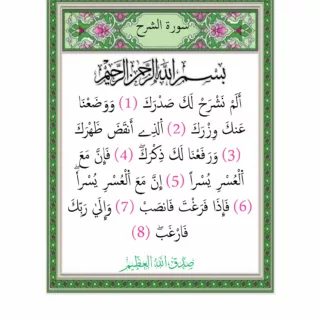 سورة الشرح
بِسْمِ اللَّهِ الرَّحْمَنِ الرَّحِيمِ
أَلَمْ نَشْرَحْ لَكَ صَدْرَكَ (1) وَوَضَعْنَا
عَنكَ وِزْرَكَ (2) اَلذِے أَنقَضَ ظَهْرَكَ
(3) وَرَفَعْنَا لَكَ ذِكْرَكَۖ (4) فَإِنَّ مَعَ
اَلْعُسْرِ يُسْراً (5) إِنَّ مَعَ اَلْعُسْرِ يُسْراٗۖ
(6) فَإِذَا فَرَغْتَ فَانصَبْ (7) وَإِلَىٰ رَبِّكَ
فَارْغَبۖ (8)
صدق الله العظيم